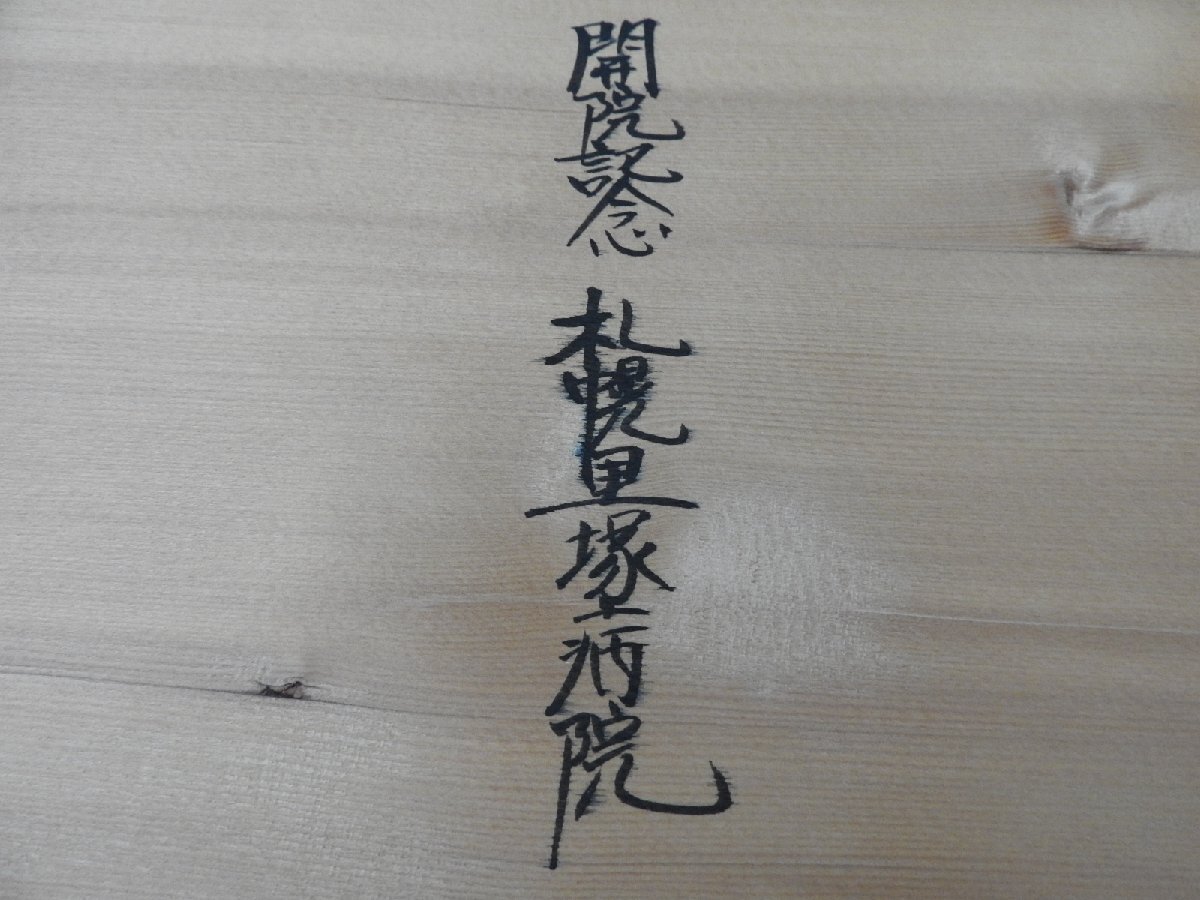 開院記念 札幌里塚病院